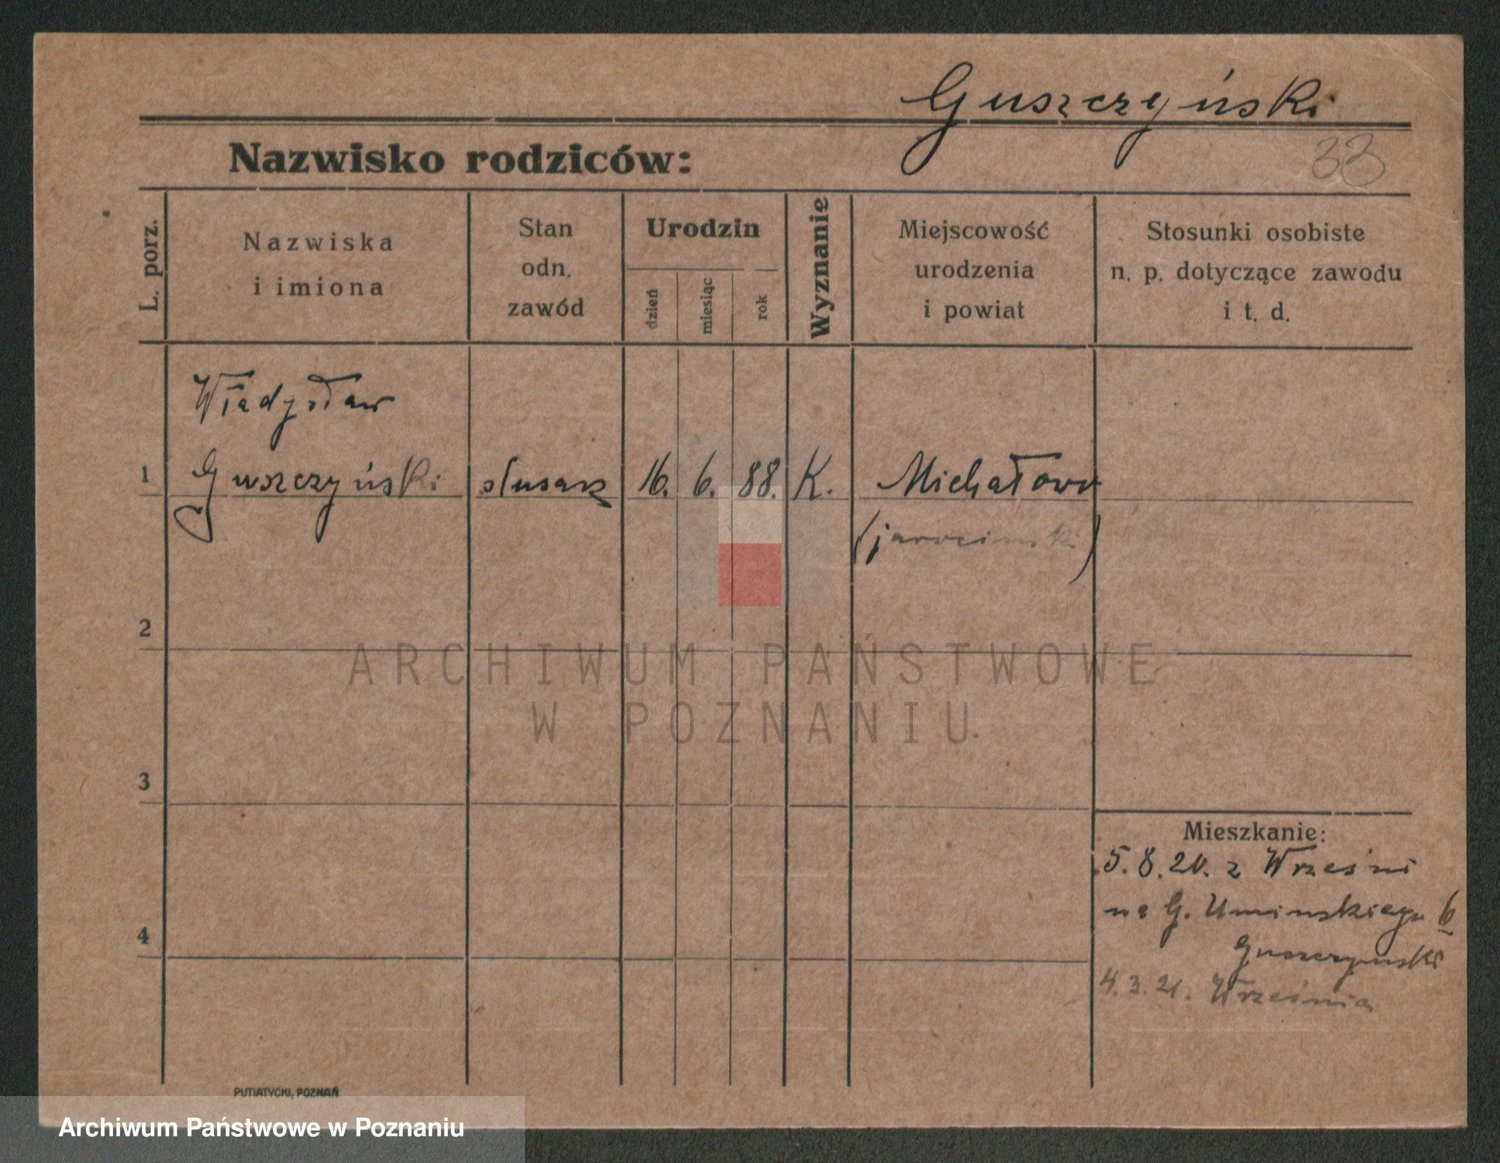 Guszczyński
33
Nazwisko rodziców:
L. porz.
Nazwiska
i imiona
Stan
odn.
zawód
Urodzin
dzień
miesiąc
rok
Wyznanie
Miejscowość
urodzenia
i powiat
Stosunki osobiste
n. p. dotyczące zawodu
i t. d.
Władysław
1 Guszczyński ślusarz 16. 6. 88. K. Michałowo
(jarociński)
2
ARCHIWUM PAŃSTWOWE
W POZNANIU
3
Mieszkanie:
5.8.20. z Wrześni
na G. Umińskiego 6
4
Guszczyński
4.3.21. Września
PUTIATYCKI, POZNAŃ
Archiwum Państwowe w Poznaniu